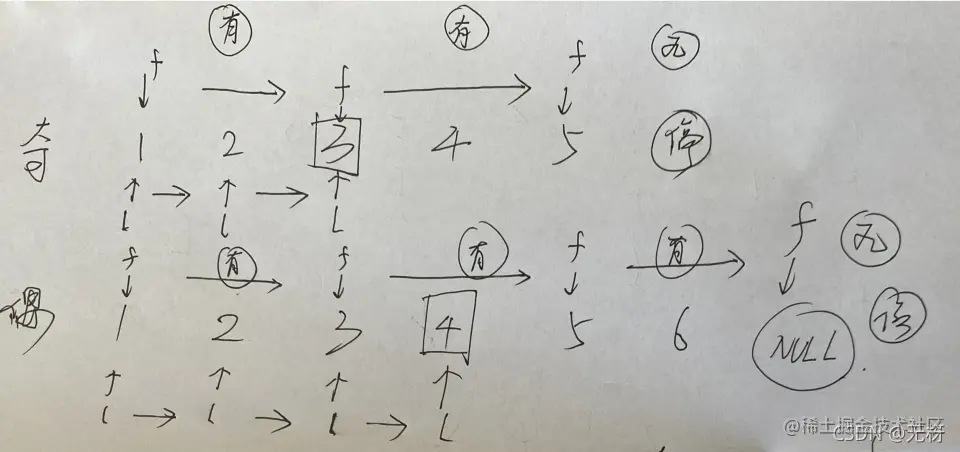 有 有 无
f f f
奇 1 2 3 4 5 停
l l l
f 有 f 有 f 有 f 无
偶 1 2 3 4 5 6 NULL 停
l l l l
@稀土掘金技术社区